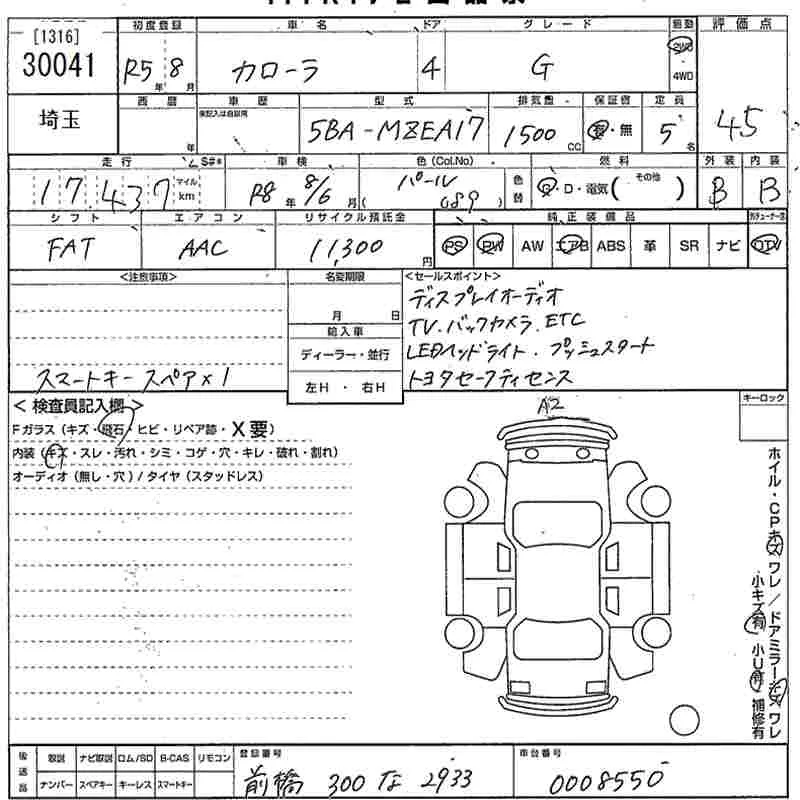 [1316]
30041
初度登録 車名 ドア グレード 駆動 評価点
R5年 8月 カローラ 4 G 2WD
4WD
埼玉
西暦 車歴 型式 排気量 保証書 定員
年 無記入は自家用 5BA-MZEA17 1500cc 有・無 5名 4.5
走行 S#* 車検 色(Col.No) 燃料 外装 内装
17,437 マイル km R8年 8/6月 パール ( 089 ) 色替 G・D・電気 ( その他 ) B B
シフト エアコン リサイクル預託金 純正装備品
FAT AAC 11,300円 PS PW AW エアB ABS 革 SR ナビ TV
<注意事項> 名変期限 <セールスポイント>
ディスプレイオーディオ
月 日 TV.バックカメラ.ETC
輸入車
ディーラー・並行 LEDヘッドライト.プッシュスタート
スマートキー スペア×1 左H・右H トヨタセーフティセンス
<検査員記入欄> A2 キーロック
Fガラス(キズ・飛石・ヒビ・リペア跡・X要)
内装(キズ・スレ・汚れ・シミ・コゲ・穴・キレ・破れ・割れ)
オーディオ(無し・穴)/タイヤ(スタッドレス)
ホイル・CPキズワレ/ドアミラーキズワレ
小キズ有 小U有 補修有
後送品 取説 ナビ取説 ロム/SD B-CAS リモコン 登録番号 車台番号
ナンバー スペアキー キーレス スマートキー 前橋 300 な 2933 0008550